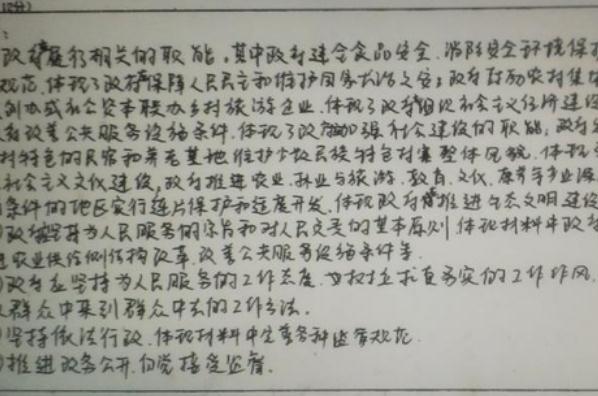 12分)
:
政府履行相关的职能,其中政府建全食品安全、消防安全环境保护
规范,体现了政府保障人民民主和维护国家长治久安;政府鼓励农村集体
创办或和公资本联办乡村旅游企业,体现了政府组织社会主义经济建设
改善公共服务设施条件,体现了政府加强社会建设的职能,政府
村特色的民宿和养老基地维护少数民族特色村寨整体风貌,体现
社会主义文化建设,政府推进农业、林业与旅游、教育、文化、康养等产业深
条件的地区实行连片保护和适度开发,体现政府推进生态文明建设
)政府坚持为人民服务的宗旨和对人民负责的基本原则 体现材料中政府
进农业供给侧结构改革,改善公共服务设施条件等.
)政府应坚持为人民服务的工作态度,树立求真务实的工作作风.
群众中来到群众中去的工作方法.
)坚持依法行政,体现材料中完善各种监管规范.
)推进政务公开,自觉接受监督.